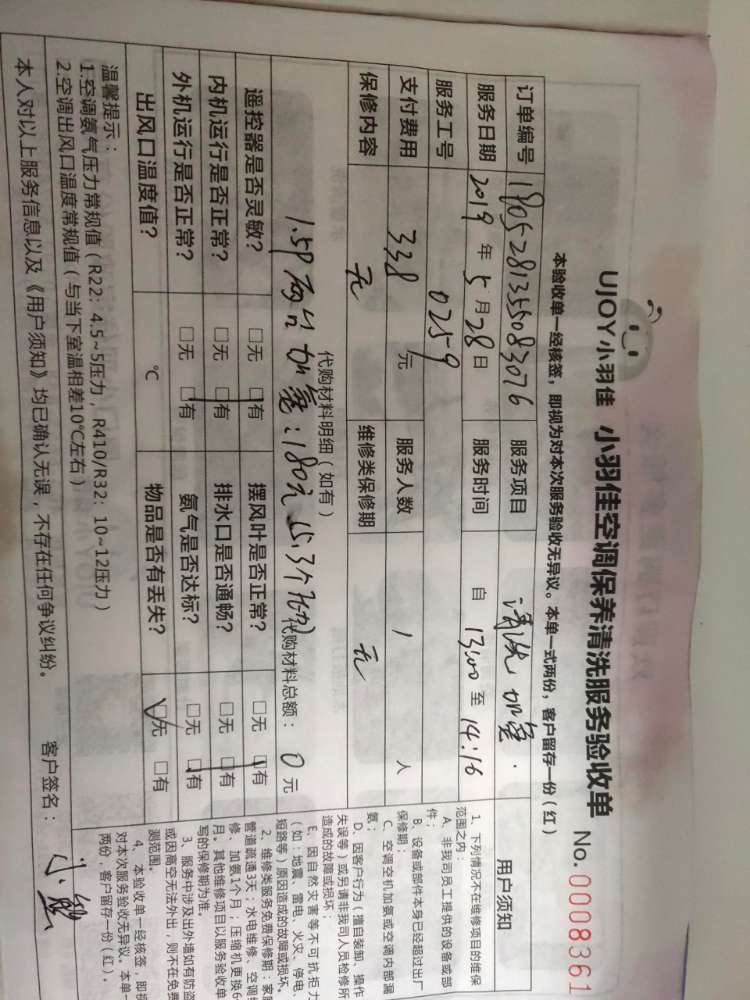 UJOY小羽佳 小羽佳空调保养清洗服务验收单 No.0008361
本验收单一经核签，即视为对本次服务验收无异议。本单一式两份，客户留存一份（红）
订单编号 1805281355083076 服务项目 清洗 加氨.
服务日期 2019年5月28日 服务时间 自13:00至14:16
服务工号 0259
支付费用 338元 服务人数 1人
保修内容 无 维修类保修期 无
代购材料明细（如有）
代购材料总额：0元
遥控器是否灵敏？ □无 □有 摆风叶是否正常？ □无 □有
内机运行是否正常？ □无 □有 排水口是否通畅？ □无 □有
外机运行是否正常？ □无 □有 氨气是否达标？ □无 □有
出风口温度值？ ℃ 物品是否有丢失？ □无 □有
温馨提示：
1.空调氨气压力常规值（R22：4.5~5压力，R410/R32：10~12压力）
2.空调出风口温度常规值（与当下室温相差10℃左右）
本人对以上服务信息以及《用户须知》均已确认无误，不存在任何争议纠纷。 客户签名：
用户须知
1、下列情况不在维修项目的维保
范围之内：
A、非我司员工提供的设备或部
件；
B、设备或部件本身已经超过出厂
保修期；
C、空调空机加氨或空调内部漏
氨；
D、因客户行为（擅自装卸、操作
失误等）或另请非我司人员检修所
造成的故障或损坏；
E、因自然灾害等不可抗拒力
（如：地震、雷电、火灾、停电、
短路等）原因造成的故障或损坏。
2、维修类服务免费保修期：家庭
管道疏通3天；水电维修、空调维
修、加氨1个月；压缩机更换6
月。其他维修项目以服务验收单
写的保修期为准。
3、服务中涉及出外墙如有防盗
或因高空无法外出，则不在免费
测范围。
4、本验收单一经核签，即视
对本次服务验收无异议。本单一
两份，客户留存一份（红）。